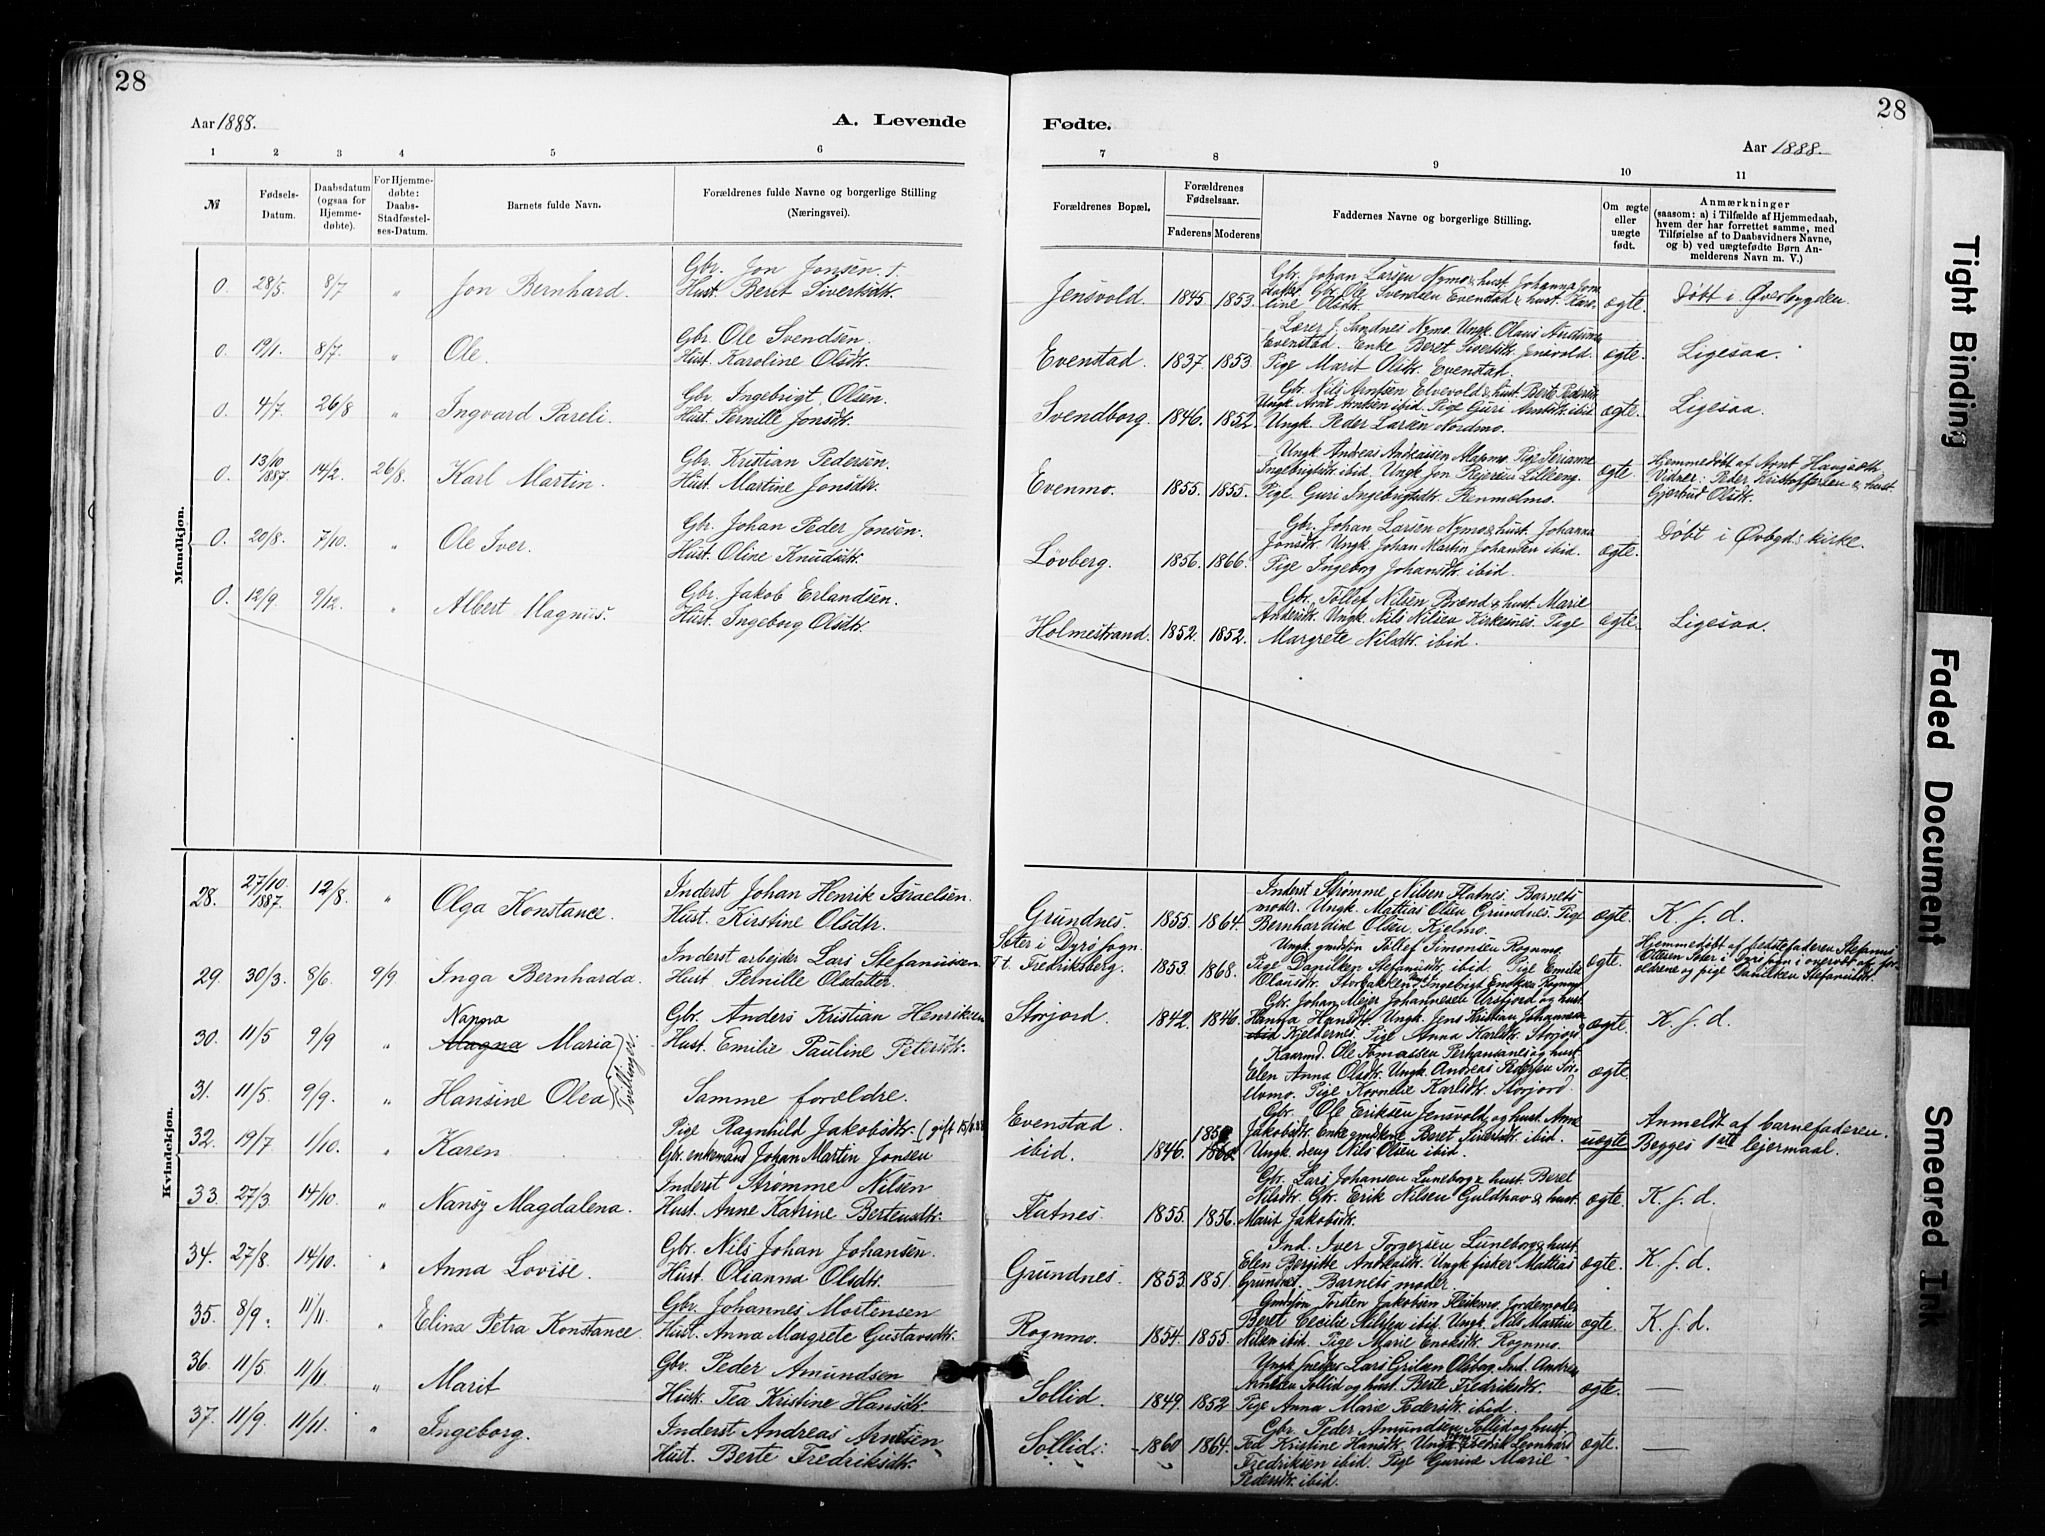 28
28
Aar 1888.
A. Levende
Fødte.
Aar 1888.
1 2 3 4 5 6
7 8 9 10 11
№
Fødsels-
Datum.
Daabsdatum
(ogsaa for
Hjemme-
døbte).
For Hjemme-
døbte:
Daabs-
Stadfæstel-
ses-Datum.
Barnets fulde Navn.
Forældrenes fulde Navne og borgerlige Stilling
(Næringsvei).
Forældrenes Bopæl.
Forældrenes
Fødselsaar.
Faderens Moderens
Faddernes Navne og borgerlige Stilling.
Om ægte
eller
uægte
født.
Anmærkninger
(saasom: a) i Tilfælde af Hjemmedaab,
hvem der har forrettet samme, med
Tilføielse af to Daabsvidners Navne,
og b) ved uægtefødte Børn An-
melderens Navn m. V.)
Mandkjøn.
0. 28/5 8/7 " Jon Bernhard.
Gbr. Jon Jonsen. †.
Hust. Beret Sivertsdtr.
Jensvold. 1845. 1853.
Gbr. Johan Larsen Nymo & hust. Johanna Jons
Gbr. Ole Svendsen Evenstad & hust. Karo-
line Olsdtr.
ægte. Døbt i Øverbygden.
0. 19/1. 8/7. " Ole.
Gbr. Ole Svendsen.
Hust. Karoline Olsdtr.
Evenstad. 1837. 1853.
Lærer J. Sandnes Nymo. Ungk. Olaus
Evenstad. Enke Beret Sivertsdtr. Jensvold.
Pige Marit Olsdtr. Evenstad.
ægte. Ligesaa.
0. 4/7. 26/8 " Ingvard Pareli.
Gbr. Ingebrigt Olsen.
Hust. Pernille Jonsdtr.
Svendborg. 1846. 1852.
Gbr. Nils Arntsen Elvevold & hust. Berte Pedersdtr.
Ungk. Arnt Arntsen ibid. Pige Guri Arntsdtr. ibid.
Ungk. Peder Larsen Nordmo.
ægte. Ligesaa.
0. 13/10 1887. 14/2. 26/8. Karl Martin.
Gbr. Kristian Pedersen.
Hust. Martine Jonsdtr.
Evenmo. 1855. 1855.
Ungk. Andreas Andreassen Alapmo. Pige Serianne
Ingebrigtsdtr. ibid. Ungk. Jon Lilleeng.
Pige Guri Ingebrigtsdtr. Renmælmo.
ægte.
Hjemmedøbt af Arnt
Vidner: Peder Kristoffersen & hust.
Gjertrud Olsdtr.
0. 20/8. 7/10. " Ole Iver.
Gbr. Johan Peder Jonsen.
Hust. Oline Knudsdtr.
Løvberg. 1856. 1866.
Gbr. Johan Larsen Nymo & hust. Johanna
Jonsdtr. Ungk. Johan Martin Johansen ibid.
Pige Ingeborg Johansdtr. ibid.
ægte. Døbt i Øvbgd: kirke.
0. 12/9. 9/12. " Albert Magnus.
Gbr. Jakob Erlandsen.
Hust. Ingeborg Olsdtr.
Holmestrand. 1852. 1852.
Gbr. Tollef Nilsen Brænd & hust. Marie
Andersdtr. Ungk. Nils Nilsen Kirkesnes. Pige
Margrete Nilsdtr. ibid.
ægte. Ligesaa.
Kvindekjøn.
28. 27/10. 1887. 12/8. " Olga Konstance.
Inderst Johan Henrik Israelsen.
Hust. Kirstine Olsdtr.
Grundnes. 1855. 1864.
Inderst Strømme Nilsen Flatnes. Barnets
moder. Ungk. Mattias Olsen Grundnes. Pige
Bernhardine Olsen Kjelmo.
ægte. K. f. d.
29. 30/3. 8/6. 9/9. Inga Bernharda.
Inderst arbeider Lars Stefanussen
Hust. Pernille Olsdatter.
Sæter i Dyrø sogn.
T.t. Fredriksberg. 1853. 1868.
Ungk. gmdsøn Tollef Simonsen Rognmo.
Pige Danilken Stefanusdtr. ibid. Pige Emilie
Olausdtr. Storbakken. Ingebrigt Rognmo.
ægte.
Hjemmedøbt af fædrefaderen Stefanus
Ottesen Sæter i Dyrø sogn i overvær af for-
ældrene og pige Danilken Stefanusdtr.
30. 11/5 9/9 " Nanna
Magna Maria
Tvillinger.
Gbr. Anders Kristian Henriksen
Hust. Emilie Pauline Petersdtr.
Storjord. 1842. 1846.
Gbr. Johan Mejer Johannesen Ursfjord og hust.
Hanna Hansdtr. Ungk. Jens Kristian Johannesen
ibid Kjeldernes. Pige Anna Karlsdtr. Storjord
ægte. K. f. d.
31. 11/5. 9/9. " Hansine Olea
Samme forældre.
Kaarmd. Ole Tomassen Perhansanes og hust.
Elen Anna Olsdtr. Ungk. Andreas Pedersen
Pige Kornelie Karlsdtr. Storjord
ægte.
32. 19/7 1/10. " Karen
Pige Ragnhild Jakobsdtr. (gift 15/6.88
Gbr. enkemand Johan Martin Jonsen
Evenstad
ibid. 1846.
Gbr. Ole Eriksen Jensvold og hust. Anne
Jakobsdtr. Enke gmdkone Beret Sivertsdtr. ibid.
Ungk. dreng Nils Olsen ibid.
uægte
Anmeldt af barnefaderen.
Begges 1ste lejermaal.
33. 27/3. 14/10. " Nansy Magdalena.
Inderst Strømme Nilsen
Hust. Anne Katrine Bertensdtr.
Flatnes. 1855. 1856.
Gbr. Lars Johansen Luneborg & hust. Beret
Nilsdtr. Gbr. Erik Nilsen Guldhav & hust.
Marit Jakobsdtr.
ægte. K. f. d.
34. 27/8. 14/10. " Anna Lovise.
Gbr. Nils Johan Johansen.
Hust. Olianna Olsdtr.
Grundnes. 1853. 1851.
Ind. Iver Torgersen Luneborg & hust.
Elen Bergitte Andreasdtr. Ungk. fisker Mattias
Grundnes. Barnets moder.
ægte. K. f. d.
35. 8/9. 11/11. " Elina Petra Konstance.
Gbr. Johannes Mortensen
Hust. Anna Margrete Gustavsdtr.
Rognmo. 1854. 1855.
Gmdsøn Torsten Jakobsen Fleskmo. Jordemoder
Beret Cecilie Nilsen ibid. Ungk. Nils Martin
Nilsen ibid. Pige Marie Enoksdtr. Rognmo.
ægte. K. f. d.
36. 11/5. 11/11. " Marit
Gbr. Peder Amundsen
Hust. Tea Kristine Hansdtr.
Sollid. 1849. 1852
Ungk. snedker Lars Olsborg. Ind. Andreas
Arntsen Sollid og hust. Berte Fredriksdtr.
Pige Anna Marie Pedersdtr. ibid.
ægte. —
37. 11/9. 11/11. " Ingeborg.
Inderst Andreas Arntsen
Hust. Berte Fredriksdtr.
Sollid. 1860 1864.
Gbr. Peder Amundsen Sollid og hust.
Tea Kristine Hansdtr. Ungk. Fredrik Leonhard
Fredriksen ibid. Pige Gurine Marie
Pedersdtr. ibid.
ægte. —
Tight Binding
Faded Document
Smeared Ink